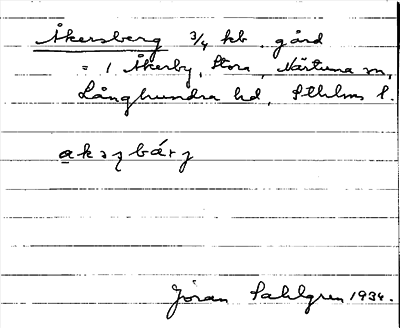 Åkersberg 3/4 kb gård
= 1 Åkerby, Stora, Närtuna sn,
Långhundra hd, Sthlms l.
akəʂbárj
Jöran Sahlgren 1934.